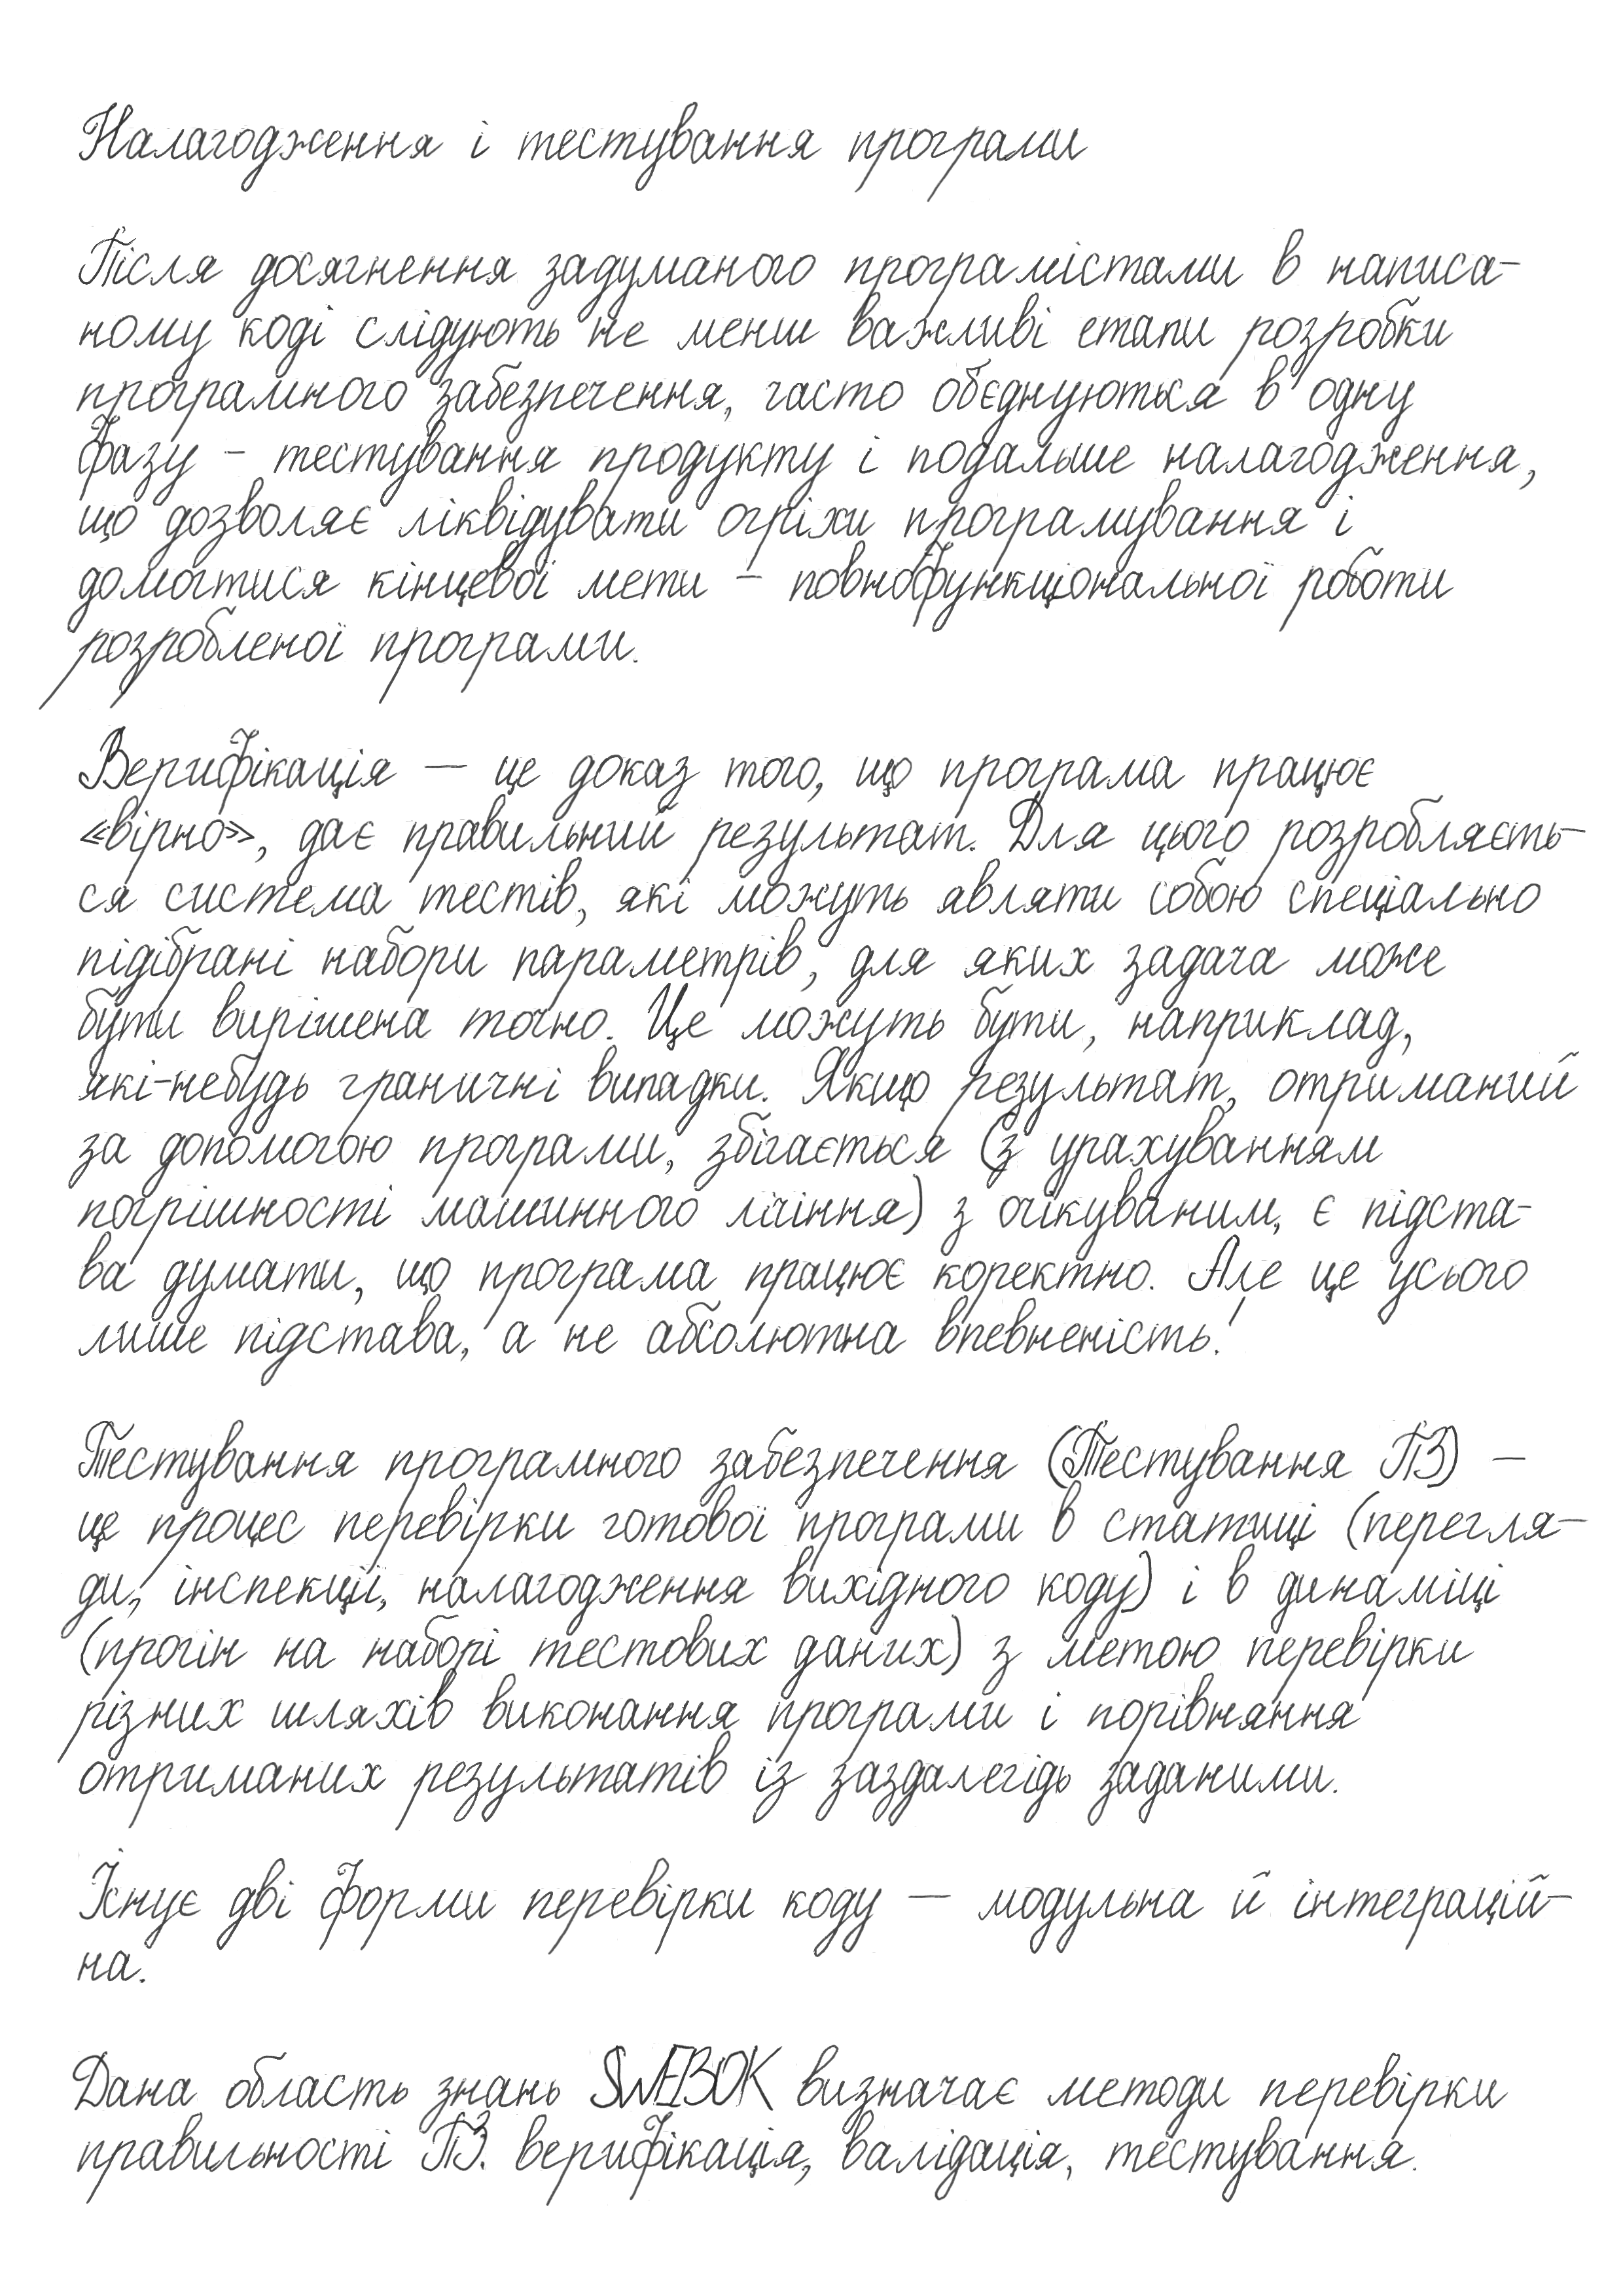 Налагодження і тестування програми
Після досягнення задуманого програмістами в написа-
ному коді слідують не менш важливі етапи розробки
програмного забезпечення, часто обєднуються в одну
фазу - тестування продукту і подальше налагодження,
що дозволяє ліквідувати огріхи програмування і
домогтися кінцевої мети - повнофункціональної роботи
розробленої програми.
Верифікація — це доказ того, що програма працює
«вірно», дає правильний результат. Для цього розробляєть-
ся система тестів, які можуть являти собою спеціально
підібрані набори параметрів, для яких задача може
бути вирішена точно. Це можуть бути, наприклад,
які-небудь граничні випадки. Якщо результат, отриманий
за допомогою програми, збігається (з урахуванням
погрішності машинного лічіння) з очікуваним, є підста-
ва думати, що програма працює коректно. Але це усього
лише підстава, а не абсолютна впевненість!
Тестування програмного забезпечення (Тестування ПЗ) —
це процес перевірки готової програми в статиці (перегля-
ди, інспекції, налагодження вихідного коду) і в динаміці
(прогін на наборі тестових даних) з метою перевірки
різних шляхів виконання програми і порівняння
отриманих результатів із заздалегідь заданими.
Існує дві форми перевірки коду — модульна й інтеграцій-
на.
Дана область знань SWEBOK визначає методи перевірки
правильності ПЗ. верифікація, валідація, тестування.